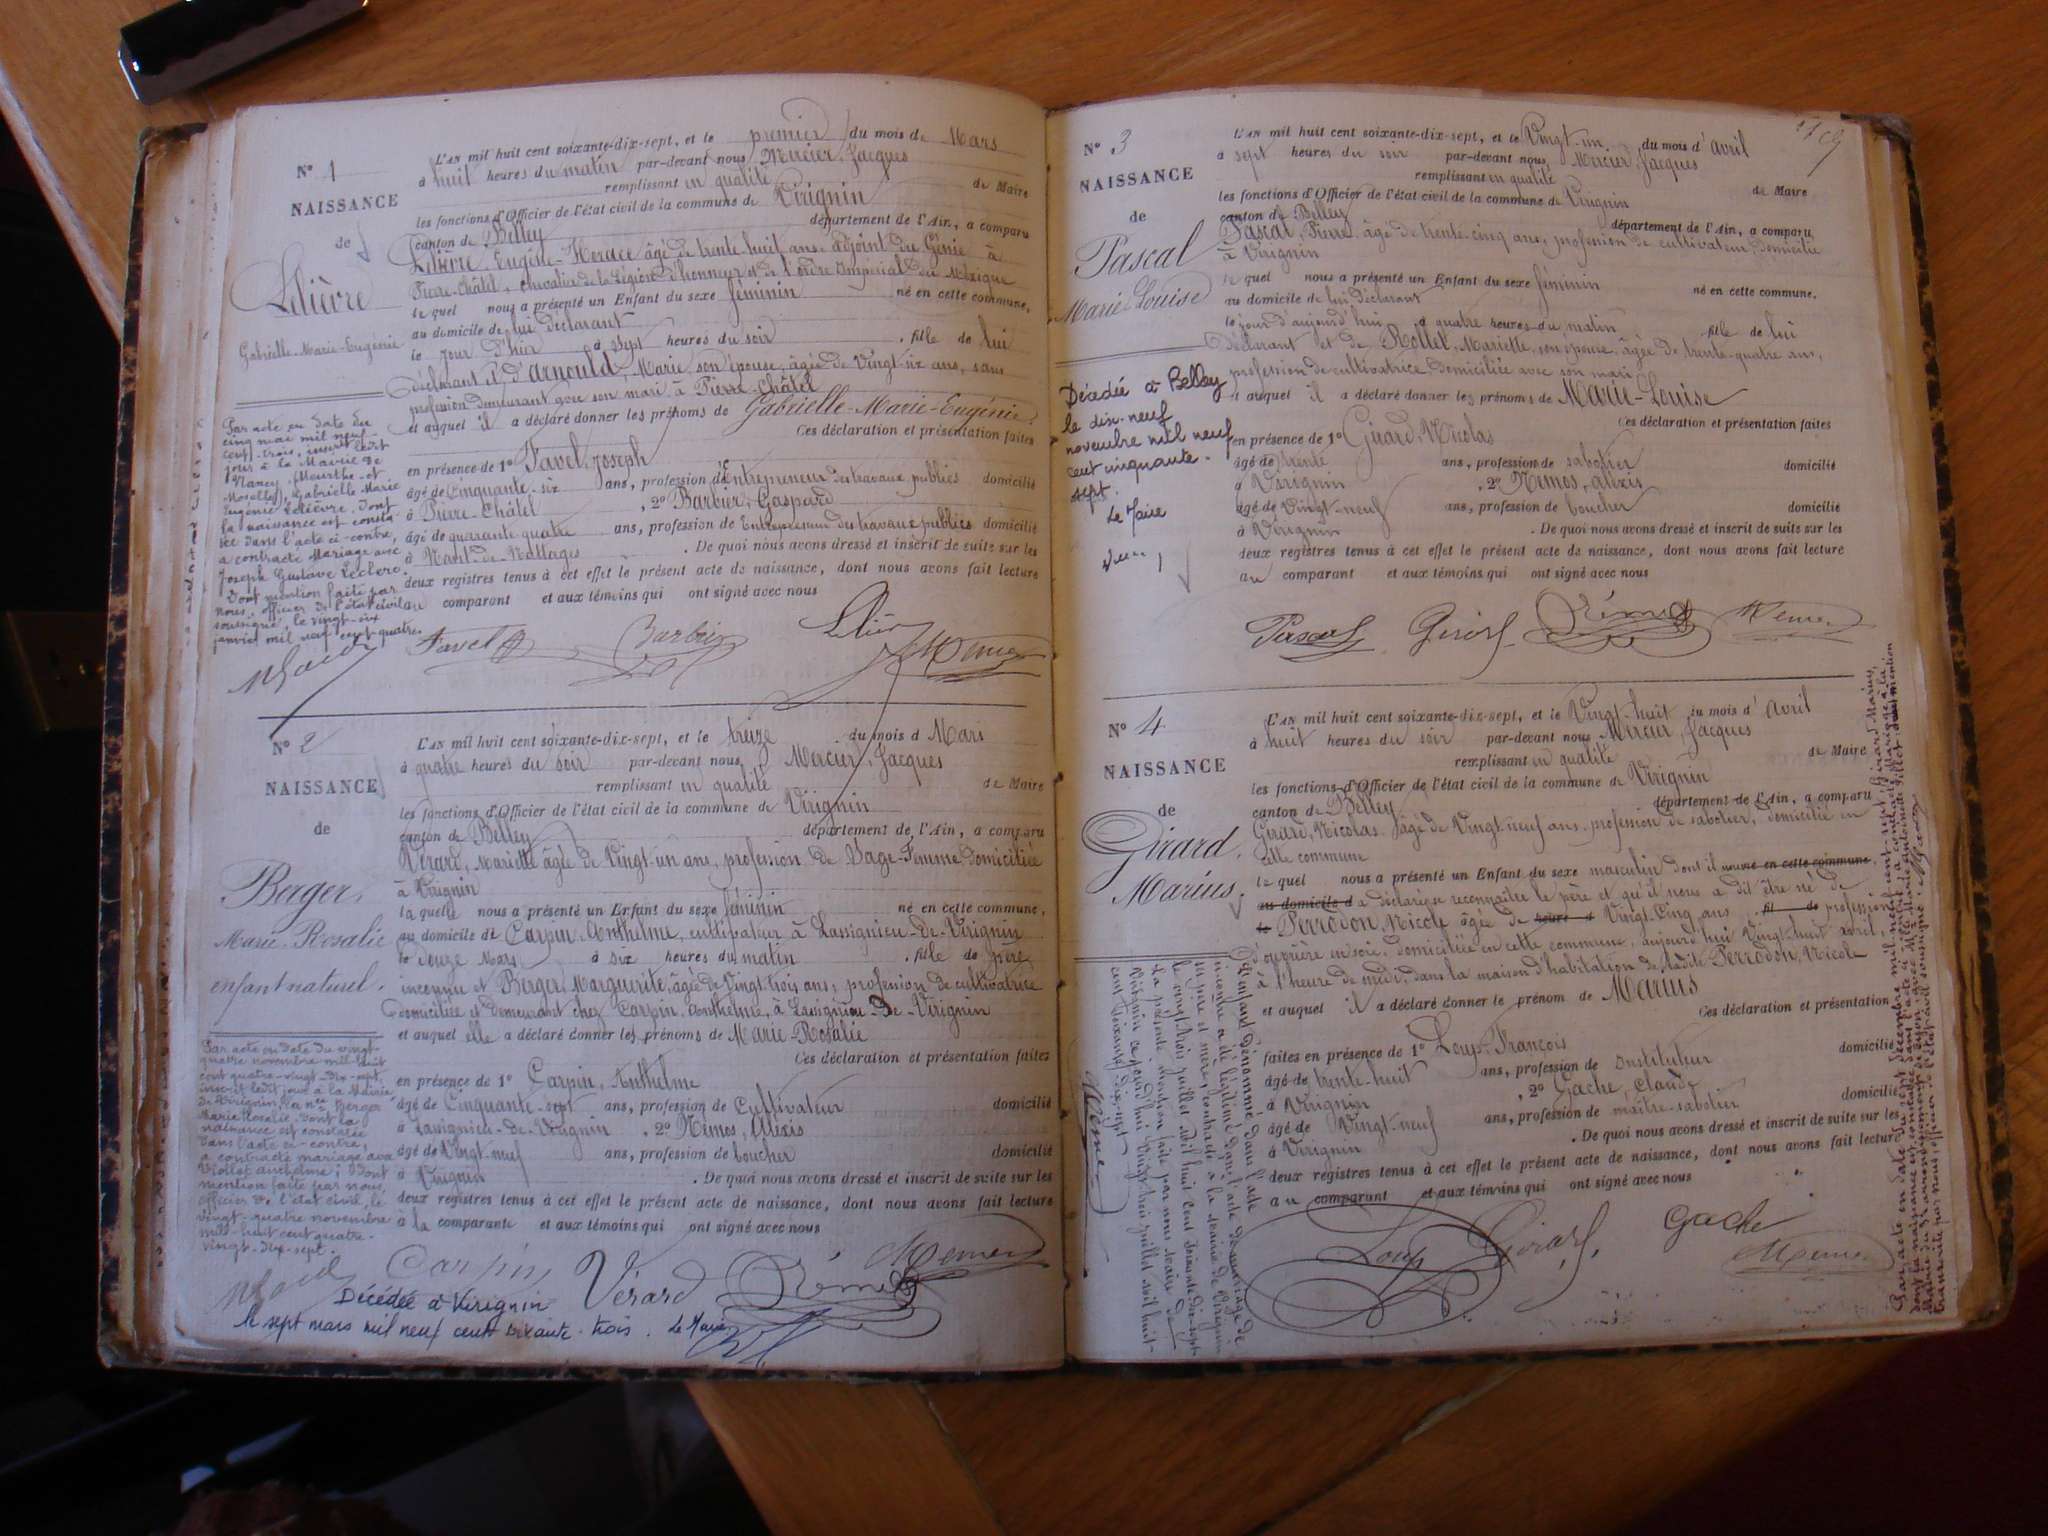 N° 1
NAISSANCE
de
Lelièvre
Gabrielle-Marie-Eugénie
L'AN mil huit cent soixante-dix-sept, et le premier du mois de Mars
à huit heures du matin par-devant nous Mercier, Jacques
remplissant en qualité de Maire
les fonctions d'Officier de l'état civil de la commune de Virignin
canton de Belley département de l'Ain, a comparu
Lelièvre, Eugène-Horace âgé de trente-huit ans adjoint du Génie à
Pierre-Châtel, chevalier de la Légion d'honneur et de l'ordre Impérial du Mexique
le quel nous a présenté un Enfant du sexe féminin né en cette commune,
au domicile de lui déclarant
le jour d'hier à sept heures du soir, fille de lui
déclarant et d'Arnould, Marie son épouse, âgée de Vingt-six ans, sans
profession demeurant avec son mari à Pierre-Châtel
et auquel il a déclaré donner les prénoms de Gabrielle-Marie-Eugénie
Ces déclaration et présentation faites
en présence de 1° Favel, Joseph
âgé de Cinquante-six ans, profession d'Entrepreneur des travaux publics domicilié
à Pierre-Châtel, 2° Barbier, Gaspard
âgé de quarante-quatre ans, profession de Entrepreneur des travaux publics domicilié
à Nant-de-Rattages. De quoi nous avons dressé et inscrit de suite sur les
deux registres tenus à cet effet le présent acte de naissance, dont nous avons fait lecture
au comparant et aux témoins qui ont signé avec nous
Par acte en date du
cinq mai mil neuf
cent trois, inscrit ledit
jour à la Mairie de
Nancy (Meurthe-et-
Moselle), Gabrielle Marie
Eugénie Lelièvre, dont
la naissance est consta-
tée dans l'acte ci-contre,
a contracté Mariage avec
Joseph Gustave Leclerc.
Dont mention faite par
nous, officier de l'état civil
soussigné, le vingt-six
janvier mil neuf cent quatre.
Favel Barbier Lelièvre
N° 2
NAISSANCE
de
Berger
Marie-Rosalie
enfant naturel.
L'AN mil huit cent soixante-dix-sept, et le treize du mois d Mars
à quatre heures du soir par-devant nous Mercier, Jacques
remplissant en qualité de Maire
les fonctions d'Officier de l'état civil de la commune de Virignin
canton de Belley département de l'Ain, a comparu
Vérard, Mariette âgée de Vingt-un ans, profession de Sage-Femme, domiciliée
à Virignin
la quelle nous a présenté un Enfant du sexe féminin né en cette commune,
au domicile de Carpin, Anthelme, cultivateur à Lassignieu-de-Virignin
le douze Mars à six heures du matin, fille de père
inconnu et Berger, Marguerite, âgée de Vingt-trois ans, profession de cultivatrice
domiciliée et demeurant chez Carpin, Anthelme, à Lassignieu-de-Virignin
et auquel elle a déclaré donner les prénoms de Marie-Rosalie
Ces déclaration et présentation faites
en présence de 1° Carpin, Anthelme
âgé de Cinquante-sept ans, profession de Cultivateur domicilié
à Lassignieu-de-Virignin, 2° Rémos, Alexis
âgé de Vingt-neuf ans, profession de boucher domicilié
à Virignin. De quoi nous avons dressé et inscrit de suite sur les
deux registres tenus à cet effet le présent acte de naissance, dont nous avons fait lecture
à la comparante et aux témoins qui ont signé avec nous
Par acte en date du vingt-
quatre novembre mil-huit
cent quatre-vingt-dix-sept,
inscrit ledit jour à la Mairie
de Virignin, la née Berger
Marie Rosalie, dont la
naissance est constatée
dans l'acte ci-contre,
a contracté mariage avec
Viollet Anthelme; dont
mention faite par nous
officier de l'état civil, le
vingt-quatre novembre
mil-huit cent quatre-
vingt-dix-sept.
Carpin Vérard
Décédée à Virignin
le sept mars mil neuf cent soixante-trois. Le Maire
N° 3
NAISSANCE
de
Pascal
Marie-Louise
L'AN mil huit cent soixante-dix-sept, et le Vingt-un du mois d'avril
à sept heures du soir par-devant nous Mercier, Jacques
remplissant en qualité de Maire
les fonctions d'Officier de l'état civil de la commune de Virignin
canton de Belley département de l'Ain, a comparu
Pascal, Pierre âgé de trente-cinq ans, profession de cultivateur, domicilié
à Virignin
le quel nous a présenté un Enfant du sexe féminin né en cette commune,
au domicile de lui déclarant
le jour d'aujourd'hui à quatre heures du matin fille de lui
déclarant et de Rollet, Mariette, son épouse, âgée de trente-quatre ans,
profession de cultivatrice domiciliée avec son mari
et auquel il a déclaré donner les prénoms de Marie-Louise
Ces déclaration et présentation faites
en présence de 1° Girard, Nicolas
âgé de trente ans, profession de sabotier domicilié
à Virignin, 2° Rémos, Alexis
âgé de Vingt-neuf ans, profession de boucher domicilié
à Virignin. De quoi nous avons dressé et inscrit de suite sur les
deux registres tenus à cet effet le présent acte de naissance, dont nous avons fait lecture
au comparant et aux témoins qui ont signé avec nous
Décédée à Belley
le dix-neuf
novembre mil neuf
cent cinquante-
sept.
Le Maire
Pascal Girard
N° 4
NAISSANCE
de
Girard
Marius
L'AN mil huit cent soixante-dix-sept, et le Vingt-huit du mois d'avril
à huit heures du soir par-devant nous Mercier, Jacques
remplissant en qualité de Maire
les fonctions d'Officier de l'état civil de la commune de Virignin
canton de Belley département de l'Ain, a comparu
Girard, Nicolas âgé de Vingt-neuf ans, profession de sabotier, domicilié en
cette commune
le quel nous a présenté un Enfant du sexe masculin dont il né en cette commune,
au domicile d a déclaré se reconnaître le père et qu'il nous a dit être né de
le Perrodon, Nicole âgée de heure d Vingt-cinq ans fil de profession
d'ouvrière en soie, domiciliée en cette commune, aujourd'hui Vingt-huit avril,
à l'heure de midi, dans la maison d'habitation de ladite Perrodon, Nicole
et auquel il a déclaré donner le prénom de Marius
Ces déclaration et présentation
faites en présence de 1° Loup, François
âgé de trente-huit ans, profession de Instituteur domicilié
à Virignin, 2° Gache, Claude
âgé de Vingt-neuf ans, profession de maître-sabotier domicilié
à Virignin. De quoi nous avons dressé et inscrit de suite sur les
deux registres tenus à cet effet le présent acte de naissance, dont nous avons fait lecture
au comparant et aux témoins qui ont signé avec nous
L'enfant dénommé dans l'acte
ci-contre a été légitimé dans l'acte de mariage de
ses père et mère, contracté à la mairie de Virignin
le vingt-trois juillet mil huit cent soixante-dix-sept
La présente mention faite par nous Maire de
Virignin ce jourd'hui vingt-trois juillet mil huit-
cent soixante dix-sept
Loup Girard Gache